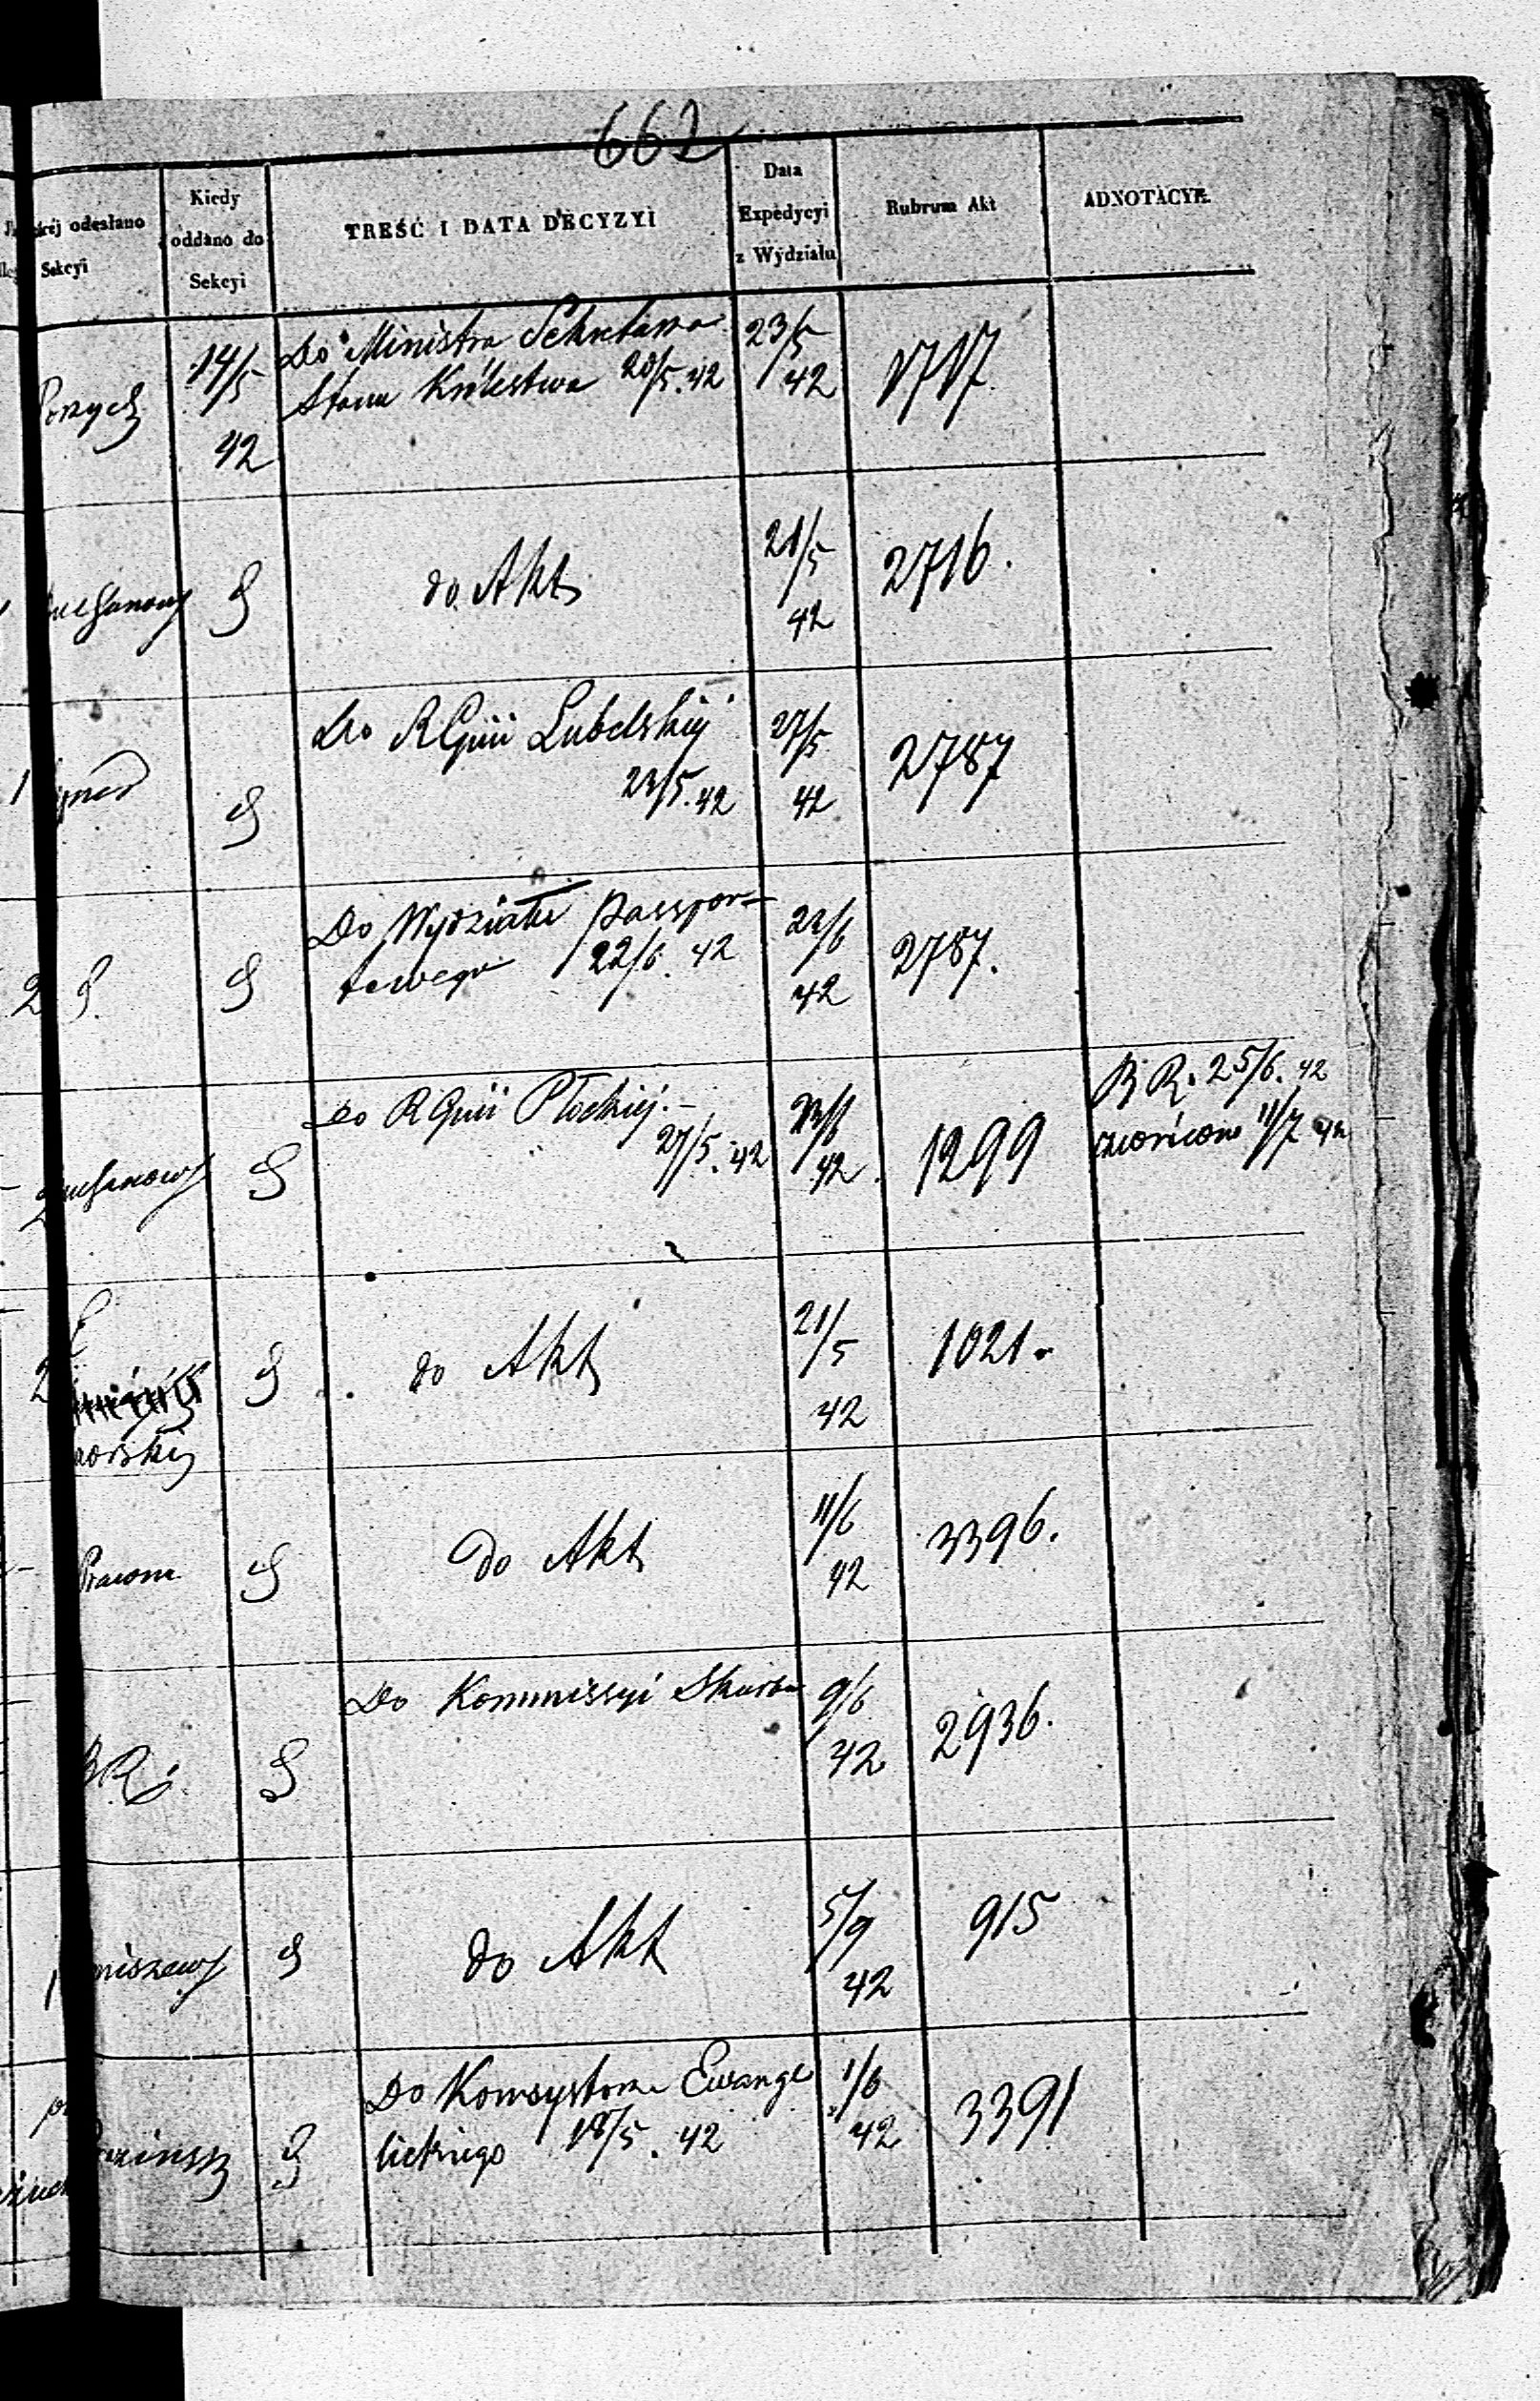 662
Kiedy
oddano do
Sekcyi
odesłano
Sekcyi
TREŚĆ I DATA DECYZYI
Data
Expedycyi
z Wydziału
Rubrum Akt
ADNOTACYE.
14/5
42
Do Ministra Sekretarza
Stanu Królestwa 20/5. 42
23/5
42
1717.
do Akt
21/5
42
2716.
Do RGnii Lubelskiéj
23/5. 42
27/5
42
2787
Do Wydziału Passpor-
towego 22/6. 42
22/6
42
2787.
Do RGnii Płockiéj.-
27/5. 42
42.
1299
B R. 25/6. 42
zwrócono 11/7 42
do Akt
21/5
42
1021.
do Akt
11/6
42
3396.
BR.
Do Kommissyi Skarbu
9/6
42
2936.
do Akt
5/9
42
915
Do Konsystorza Ewange
lickiego 18/5. 42
1/6
42
3391